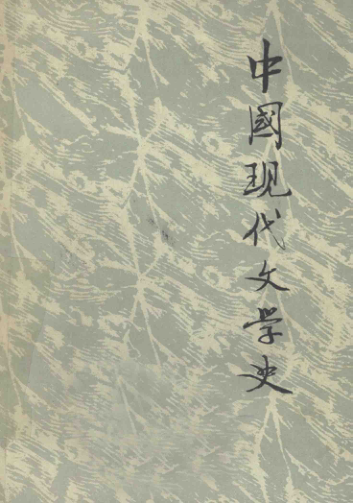 中國现代文学史